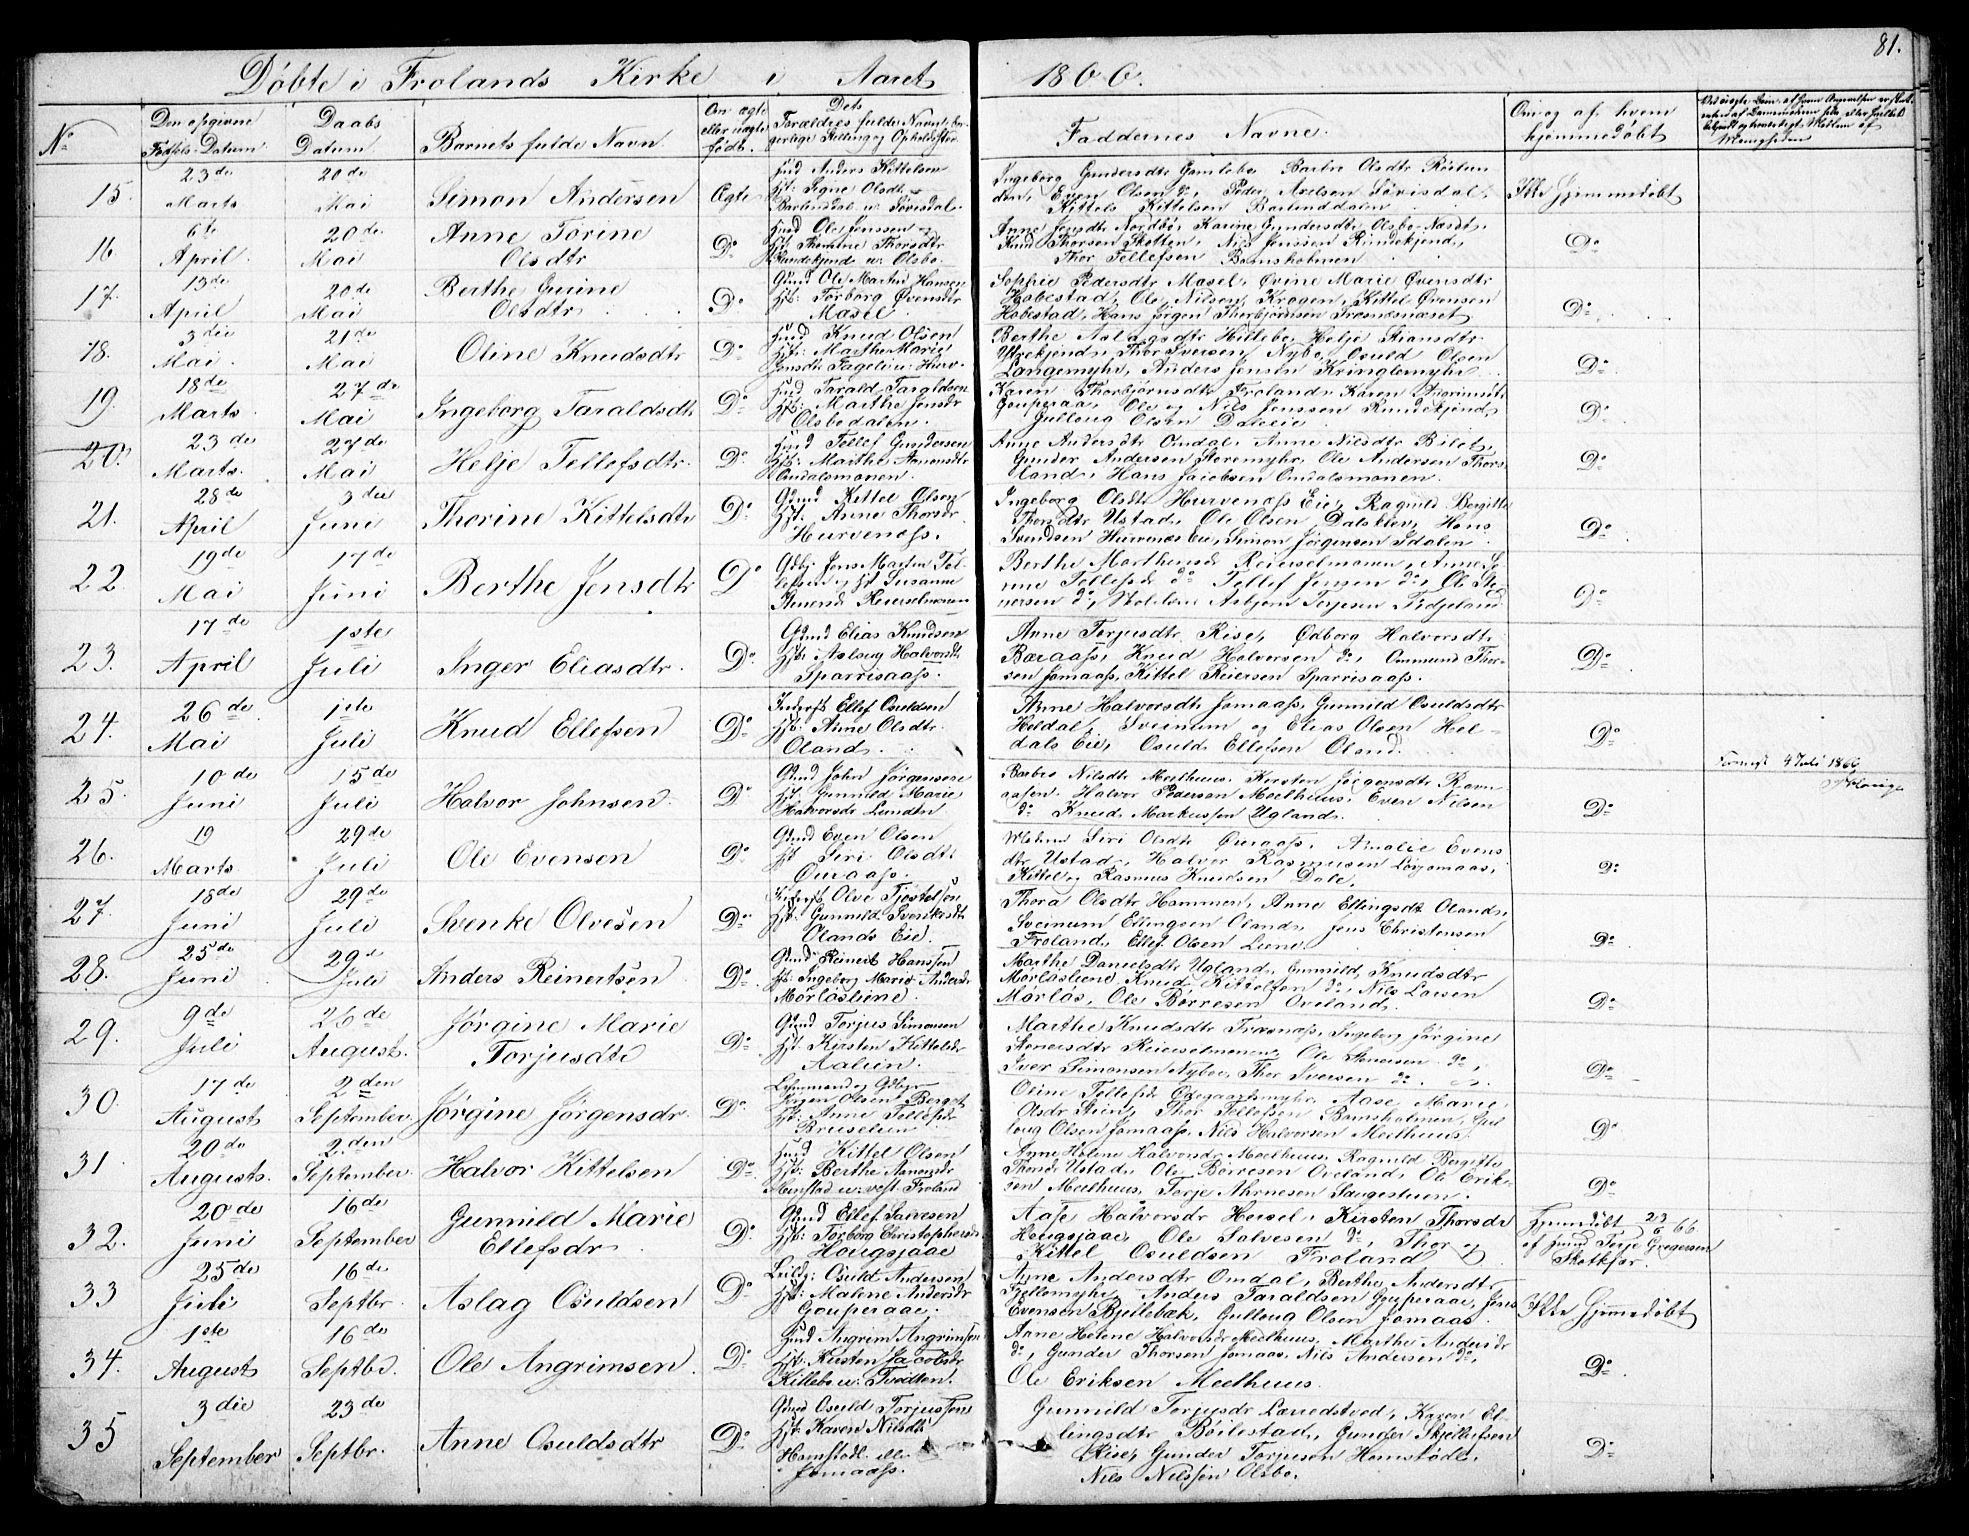 81.
Døbte i Frolands Kirke i Aaret 1866.
No
Den opgivne Fødsels-Datum.
Daabs Datum.
Barnets fulde Navn
Om ægte eller uægte født.
Dets Forældres fulde Navn, borgerlige Stilling og Opholdssted
Faddernes Navne.
Om og af hvem hjemmedøbt
15. 23de Marts 20de Mai Simon Andersen Ægte
Huusd Anders Kittelsen
Hst: Signe Olsdtr
Barlinddal u: Løvisdal.
Ingeborg Gundersdtr Gamlebo Barbro Olsdtr
Even Olsen do, Peder Axelsen Løvisdal,
Kittel Kittelsen Barlinddalen
Ikke Hjemmedøbt
16 6te April. 20de Mai Anne Torine Olsdtr Do
Ole Jenssen
Hst: Thomine Thorsdtr
Rundekjend u: Olsbo.
Anne Jensdtr Nordbø, Karine Gundersdtr Olsbo,
Knud Thorsen Skotten, Nils Jenssen Rundekjend,
Thor Tellefsen Bomsholmen
Do
17. 13de April 20de Mai Berthe Gurine Olsdtr Do
Gmd Ole Martin Hansen
Hst: Torborg Øvensdtr
Masel
Sophie Pedersdtr Masel, Ovine Marie Øvensdtr
Hobestad, Ole Nilsen Kragen, Kittel Øvensen
Hobestad, Hans Jørgen Thorbjørnsen Træsnæsnæset
Do
18. 3die Mai. 21de Mai Oline Knudsdtr Do
Huusd Knud Olsen
Hst: Marthe Marie
Jensdtr
Berthe Aslagsdtr Hillebo, Helje Steansdtr
Ytrekjend, Thor Iversen Nybo, Osuld Olsen
Langemyhr, Anders Jensen Kringlemyhr
Do
19. 18de Marts 27de Mai Ingeborg Taraldsdtr Do
Huusd Tarald Taraldsen
Hst: Marthe Jensdr
Olsbodalen.
Karen Thorbjørnsdtr Froland, Karen
Gouperaa, Ole og Nils Jenssen Rundekjend,
Gulloug Olsen Dalseie
Do
20. 23de Marts. 27de Mai Helje Tellefsdtr. Do
Huusd Tellef Gundersen
Hst: Marthe Aanonsdtr
Omdalsmonen.
Anne Andersdtr Omdal, Anne Nilsdtr
Gunder Andersen Storemyhr, Ole Andersen Thorsland,
Hans Jacobsen Omdalsmonen.
Do
21. 28de April 3die Juni Thorine Kittelsdtr Do
Gmd Kittel Olsen
Hst: Anne Thorsdr
Hurvenæss.
Ingeborg Olsdtr Hurvenæss Eie, Ragnild Bergitte
Thorsdtr Ustad, Ole Olsen Dalsklev, Hans
Svendsen Hurvenæs Eie, Simon Jørgensen Idalen
Do
22 19de Mai 17de Juni Berthe Jensdtr Do
Gdbr Jens Martin Tellefsen
og Hst Susanne
Stenersd Reierselmonen
Berthe Marthensd Reierselmonen, Anne Lone
Tellefsd do Tellef Jensen do, Ole Stenersen
do, Asbjørn Terjesen Tidjeland
Do
23. 17de April 1ste Juli Inger Eliasdtr. Do
Gmd Elias Knudsen
Hst: Aslaug Halvorsdtr
Sparrisaass.
Anne Torjusdtr Rise, Ødborg Halvorsdtr
Bæraass, Knud Halvorsen do, Ommund Thorsen
Jomaass, Kittel Reiersen Sparrisaass.
Do
24. 26de Mai 1ste Juli Knud Ellefsen Do
Inderst Ellef Osuldsen
Hst: Anne Olsdtr
Oland.
Anne Halvorsdtr Jomaass, Gunnild Osuldsdtr
Heldal, Sveinum og Elias Olsen Heldals
Eie, Osuld Ellefsen Oland
Do
25. 10de Juni 15de Juli Halvor Johnsen Do
Gmd John Jørgensen
Hst: Gunnild Marie
Halvorsdr Lunden
Barbro Nilsdtr Meelhuus, Kirsten Jørgensdtr Ravnaasen,
Halvor Pedersen Meelhuus, Even Nilsen
do Knud Markussen Ugland.
Do
4 Juli 1866
26. 19 Marts. 29de Juli Ole Evensen Do
Gmd Even Olsen
Hst Siri Olsdtr
Ouraass.
Siri Olsdtr Ouraass, Amalie Evensdtr
Ustad, Halvor Rasmussen
Kittel og Rasmus Knudsen Dale.
Do
27. 18de Juni 29de Juli Svenke Olvesen Do
Inderst Olve Tjostelsen
Hst: Gunnild Svenkesdtr
Olands Eie.
Thora Olsdtr Hammen, Anne Ellingsdtr Oland,
Sveinum Ellingsen Oland, Jens Christensen
Froland, Ellef Olsen Liene
Do
28. 25de Juni 29de Juli Anders Reinertsen Do
Gmd Reinert Hanssen
Hst: Ingeborg Marie Andersdr
Mørlosliene.
Marthe Danielsdtr Ugland, Gunnild Knudsdtr
Mørlosliene, Knud Kittelsen do, Nils Larsen
Mørlos, Ole Børresen Oveland,
Do
29. 9de Juli 26de August. Jørgine Marie Torjusdtr Do
Gmd Torjus Simonsen
Hst: Kirsten Kittelsdr
Aalien.
Marthe Knudsdtr Træsnæss, Ingeborg Jørgine
Stenersdtr Reierselmonen, Ole Stenersen do,
Iver Simonsen Nyboe, Thor Iversen do.
Do
30. 17de August 2den September Jørgine Jørgensdr. Do
Lehnsmand og Gdbr
Jørgen Olsen Berget
Hst: Anne Tellefsdr
Bruselien
Oline Tellefsd Ødegaardsmyhr, Aase Marie
Olsdr Stien, Thor Tellefsen Bomsholmen, Gulloug
Olsen Jomaass, Nils Halvorsen Meelhuus.
Do
31. 20de Augusts. 2den September Halvor Kittelsen Do
Huusd Kittel Olsen
Hst: Berthe Aanonsdr
Minstad u: vest Froland
Anne Helene Halvorsdr Meelhuus, Ragnild Bergitte
Thorsdr Ustad, Ole Børresen Oveland, Ole Eriksen
Meelhuus, Terje Ahrnesen Saugesteen.
Do
32. 20de Juni 16de September Gunnild Marie Ellefsdr Do
Gmd Ellef Salvesen
Hst: Torborg Christophersdr
Hougsjaae
Aase Halvorsdr Heisel, Kirsten Thorsdr
Hougsjaae, Ole Salvesen do, Thor og
Kittel Osuldsen Froland
Hjemdøbt 23/6 66 af Huusd Terje Gregersen Skotkjær.
33 25de Juli 16de Septbr. Aslag Osuldsen Do
Leildg: Osuld Andersen
Hst: Malene Andersdr
Gouperaae.
Anne Andersdtr Omdal, Berthe Andersdtr
Fjellomyhr, Anders Taraldsen Gouperaae, Jens
Evensen Bjellebæk, Gulloug Olsen Jomaas
Ikke Hjemmedøbt
34. 1ste August 16de Septbr Ole Angrimsen Do
Huusd Angrim Angrimsen
Hst: Kirsten Jacobsdr
Killebo u: Tvedten.
Anne Helene Halvorsdr Meelhuus, Marthe Andersdr
do, Gunder Thorsen Jomaas, Nils Andersen do,
Ole Eriksen Meelhuus.
Do
35 3die September 23de Septbr. Anne Osuldsdtr Do
Gmd Osuld Torjussen
Hst: Karen Nilsdtr
Hamstøl ell:
Jomaass.
Gunnild Torjusdr Lauvdstved, Karen Ellingsdtr
Bøilestad, Gunder Skjellufsen
Rise, Gunder Torjusen Hamstøl,
Nils Nilssen Olsbo.
Do